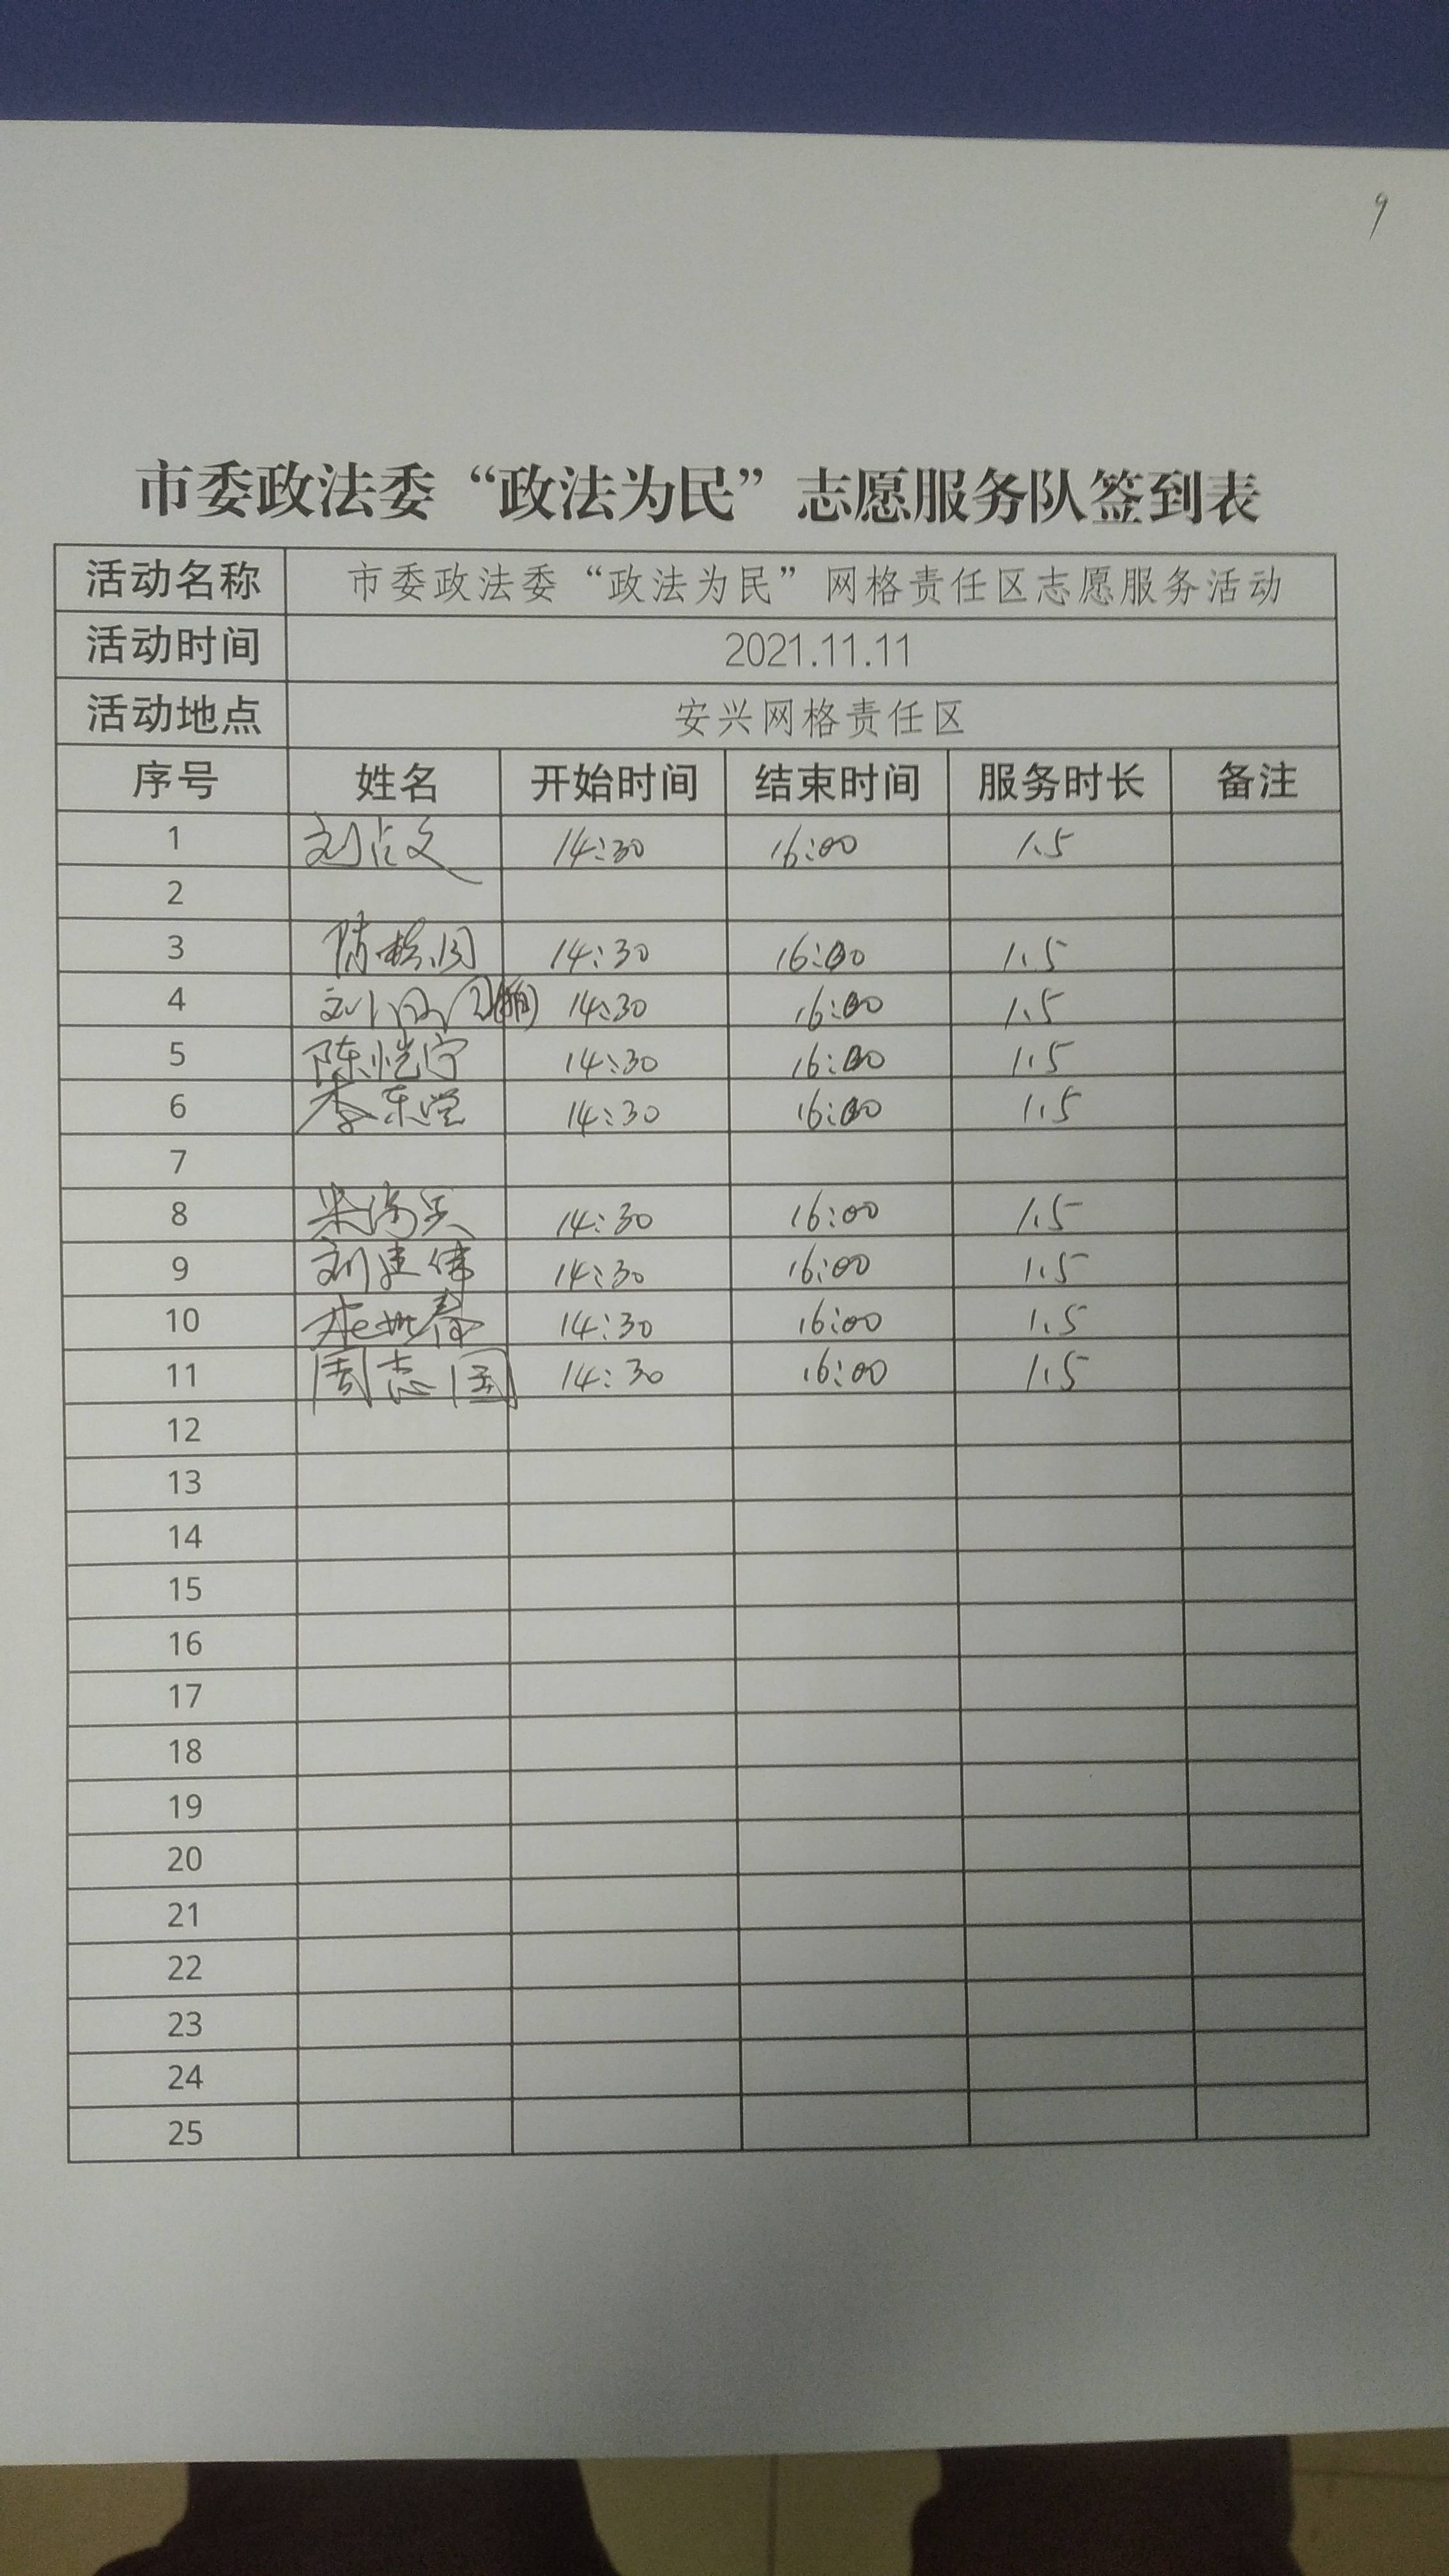 9
市委政法委“政法为民”志愿服务队签到表
活动名称 市委政法委“政法为民”网格责任区志愿服务活动
活动时间 2021.11.11
活动地点 安兴网格责任区
序号 姓名 开始时间 结束时间 服务时长 备注
1 刘占文 14:30 16:00 1.5
2
3 陈 14:30 16:00 1.5
4 刘 14:30 16:00 1.5
5 陈恺宁 14:30 16:00 1.5
6 李东 14:30 16:00 1.5
7
8 14:30 16:00 1.5
9 刘建伟 14:30 16:00 1.5
10 14:30 16:00 1.5
11 周志国 14:30 16:00 1.5
12
13
14
15
16
17
18
19
20
21
22
23
24
25